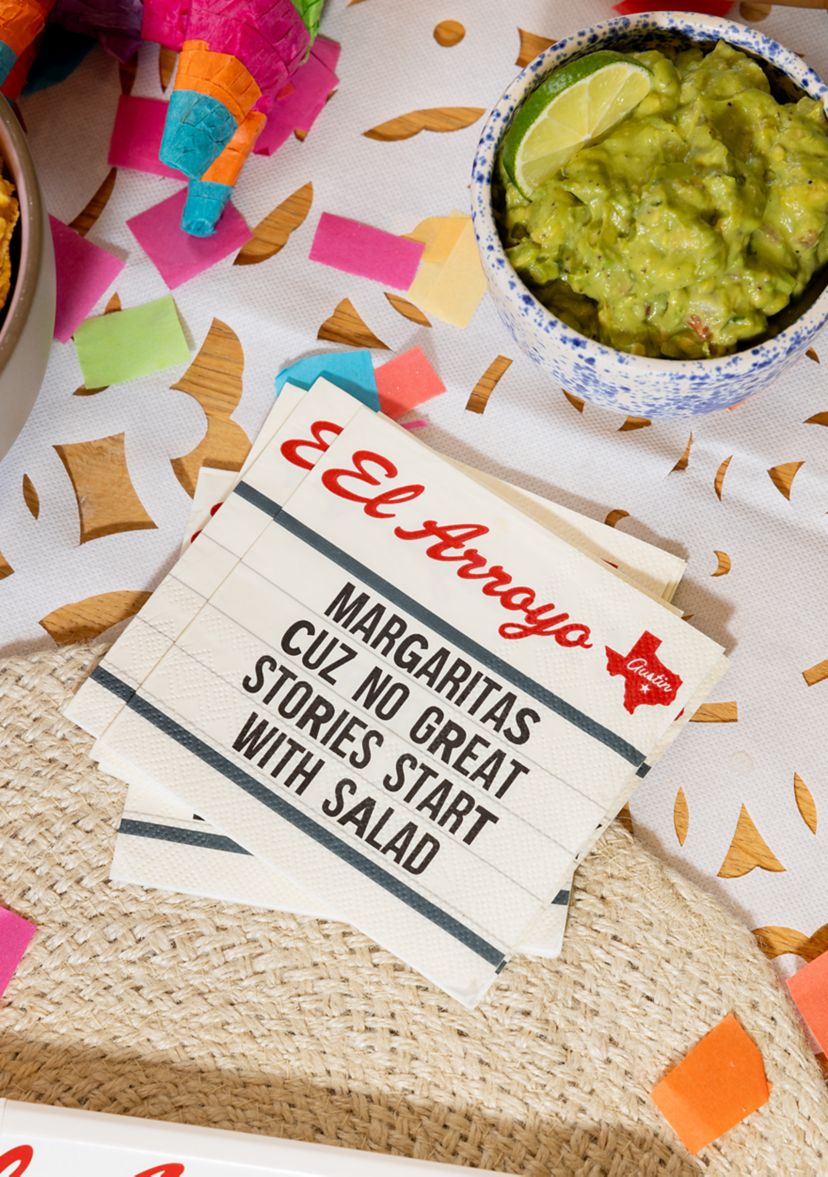 El Arroyo
Austin
MARGARITAS
CUZ NO GREAT
STORIES START
WITH SALAD